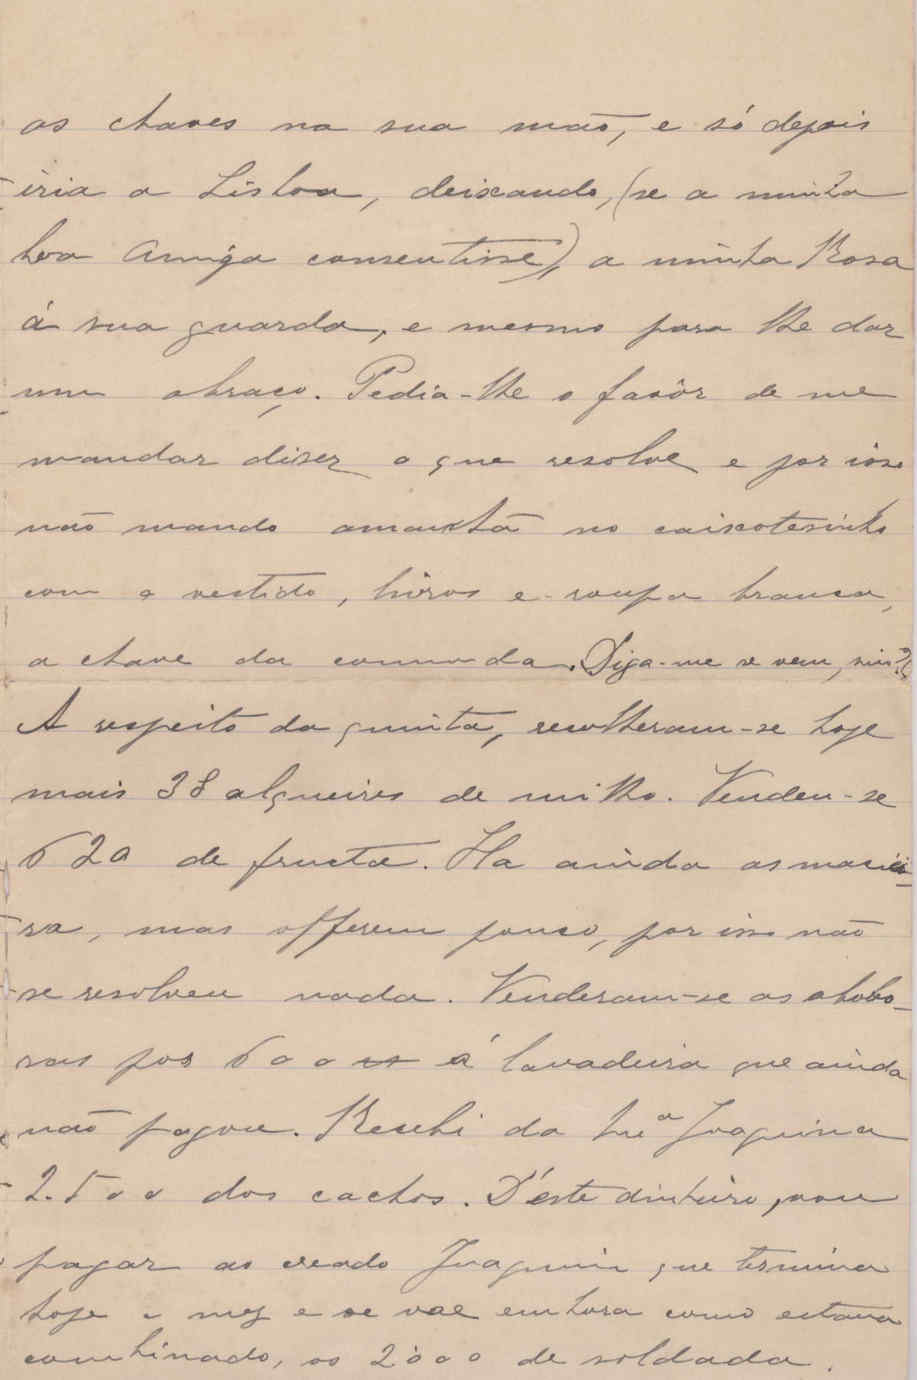 as chaves na sua mão, e só depois
iria a Lisboa, deixando, (se a minha
boa Amiga consentisse), a minha Rosa
á sua guarda, e mesmo para lhe dar
um abraço. Pedia-lhe o favôr de me
mandar diser o que resolve e por isso
não mando amanhã no caixotesinho
com o vestido, livros e roupa branca,
a chave da commoda. Diga-me se vem, sim?
A respeito da quinta, recolheram-se hoje
mais 38 alqueires de milho. Vendeu-se
620 de fructa. Ha ainda as maciei-
ra, mas offerecem pouco, por isso não
se resolveu nada. Venderam-se as abobo-
ras por 600 rs á lavadeira que ainda
não pagou. Recebi da Snr.ª Joaquina
2.500 dos cachos. D'este dinheiro, vou
pagar ao creado Joaquim que termina
hoje o mez e se vae embora como estava
combinado, os 2000 de soldada.